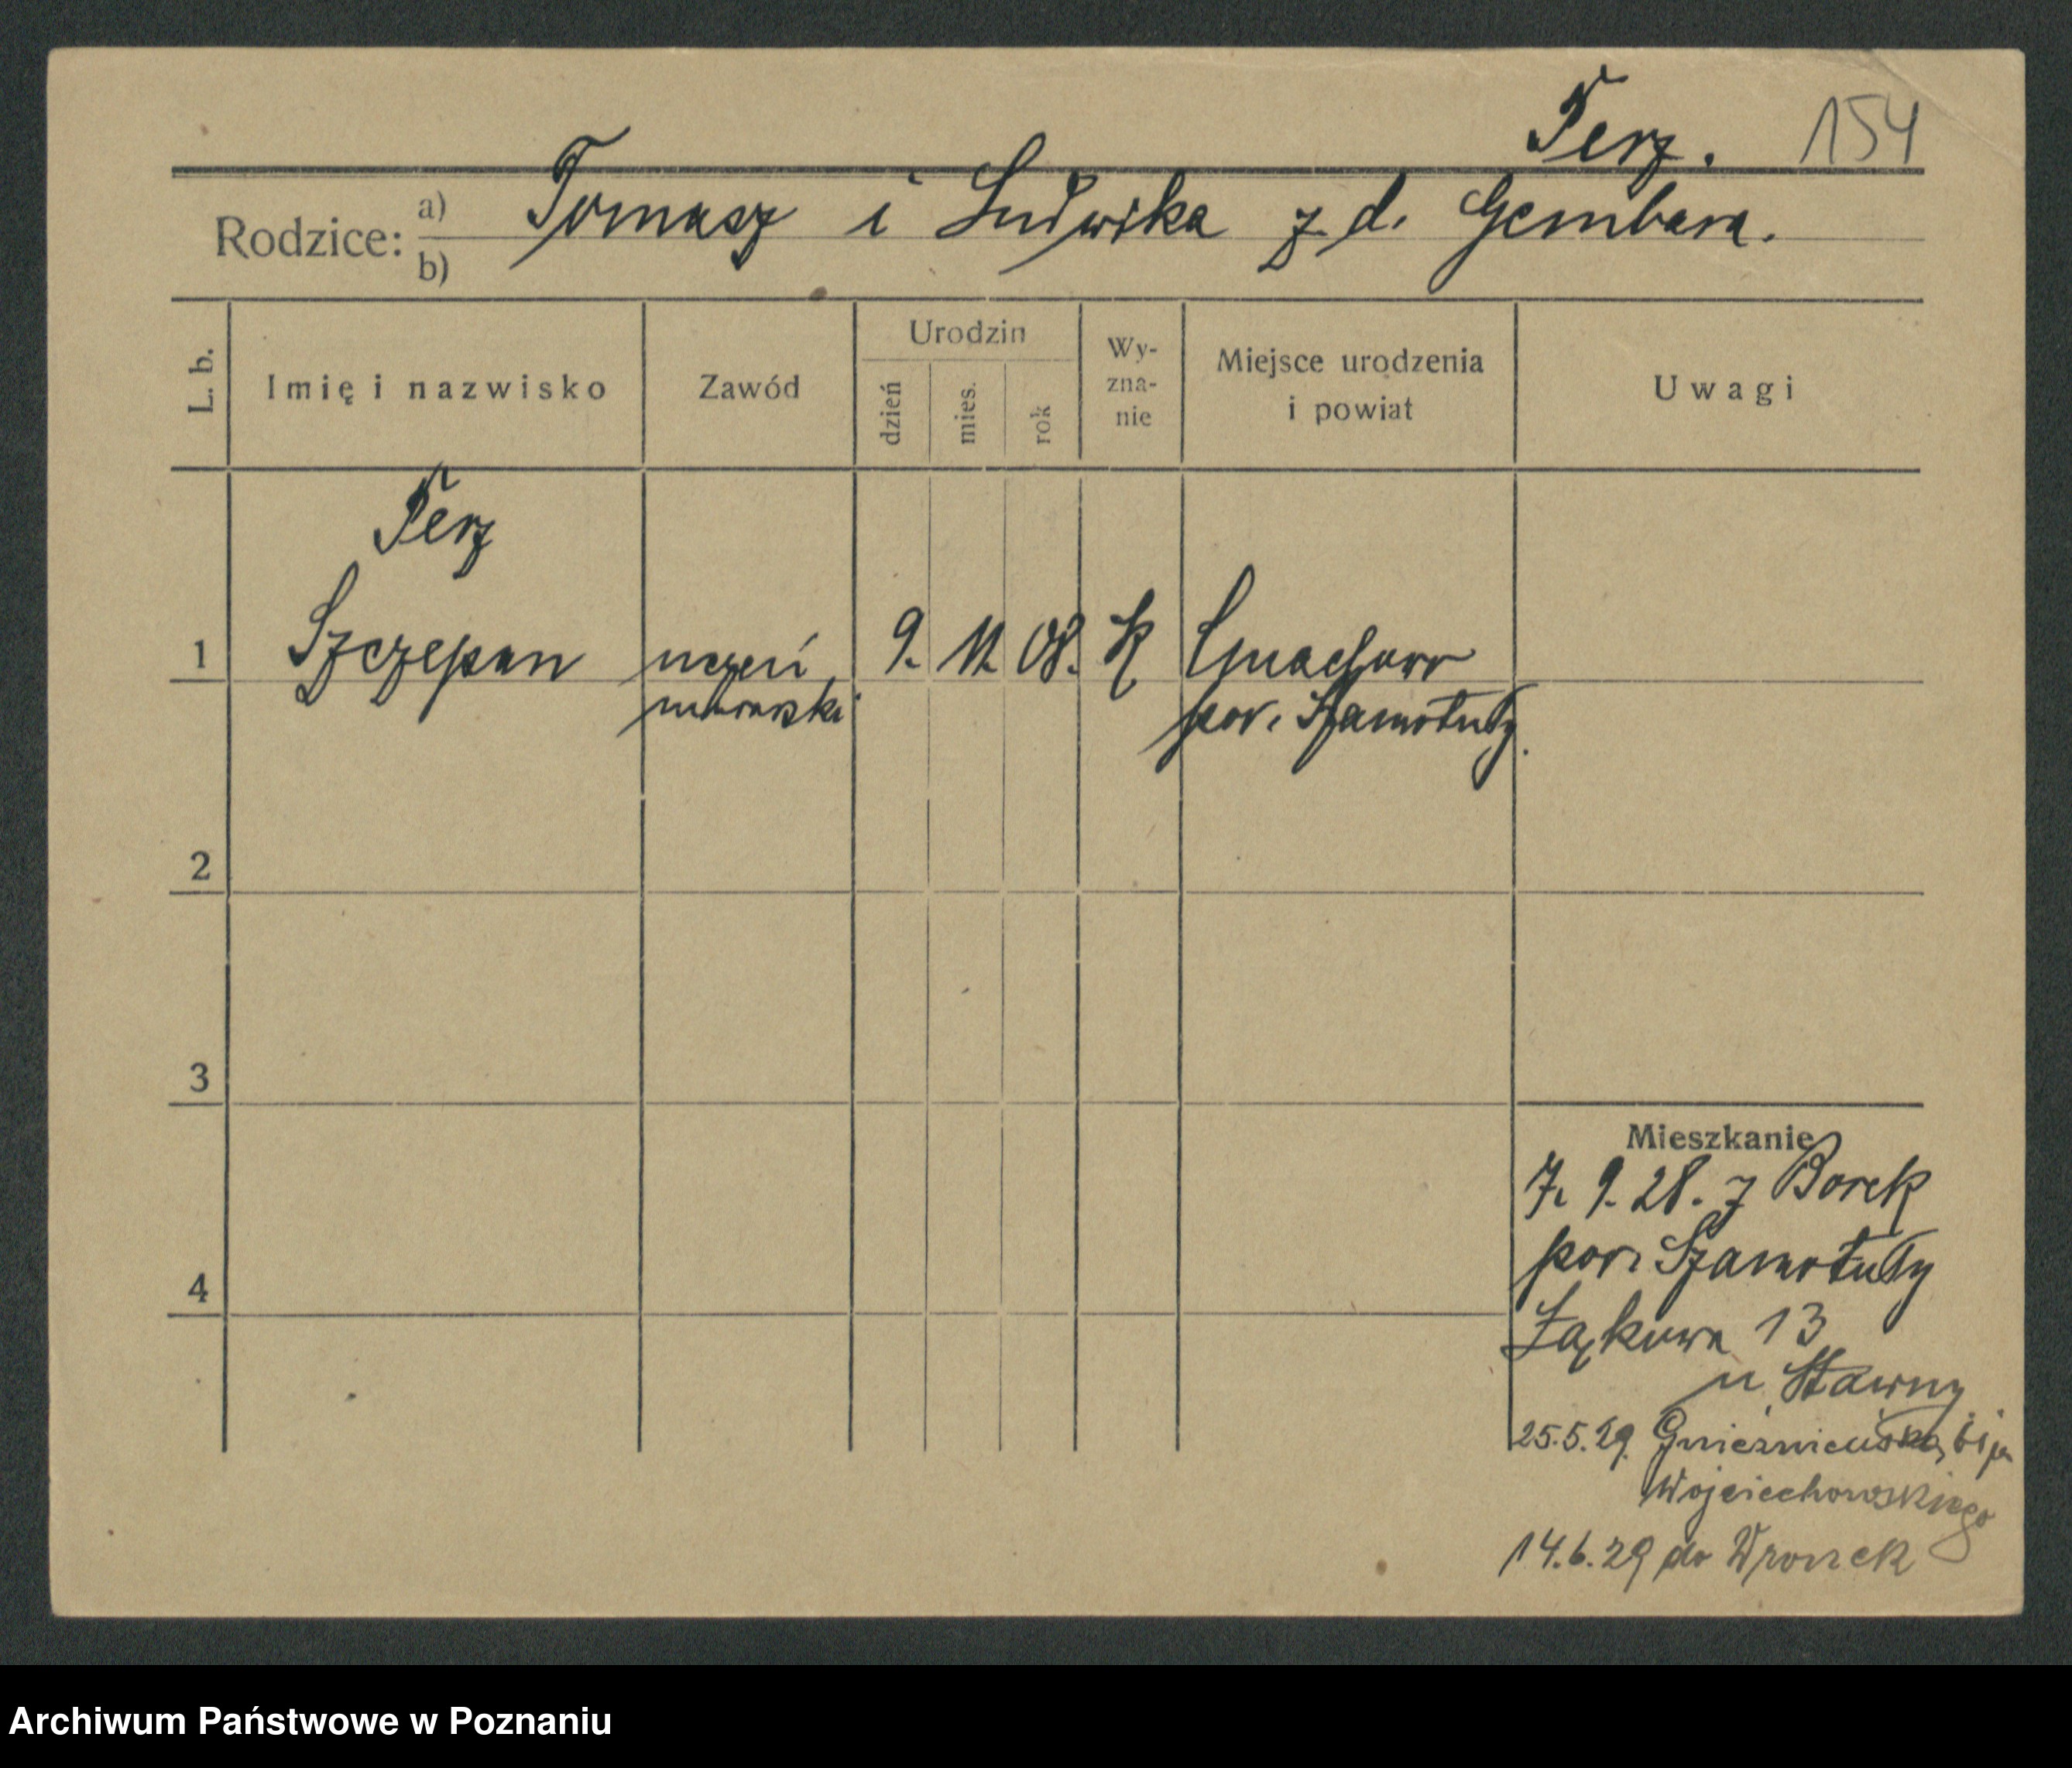 Perz. 154
Rodzice: a) Tomasz i Ludwika z d. Gembara.
b)
L. b. Imię i nazwisko Zawód Urodzin dzień mies. rok Wyznanie Miejsce urodzenia i powiat Uwagi
Perz
1 Szczepan uczeń 9. 11. 08. k Ćmachowo
murarski pow. Szamotuły.
2
3
Mieszkanie
7. 9. 28. z Borek
pow. Szamotuły
4
Łąkowa 13
u Stawny
25.5.29. Gnieźnieńska
Wojciechowskiego
14.6.29 do Wronek
Archiwum Państwowe w Poznaniu